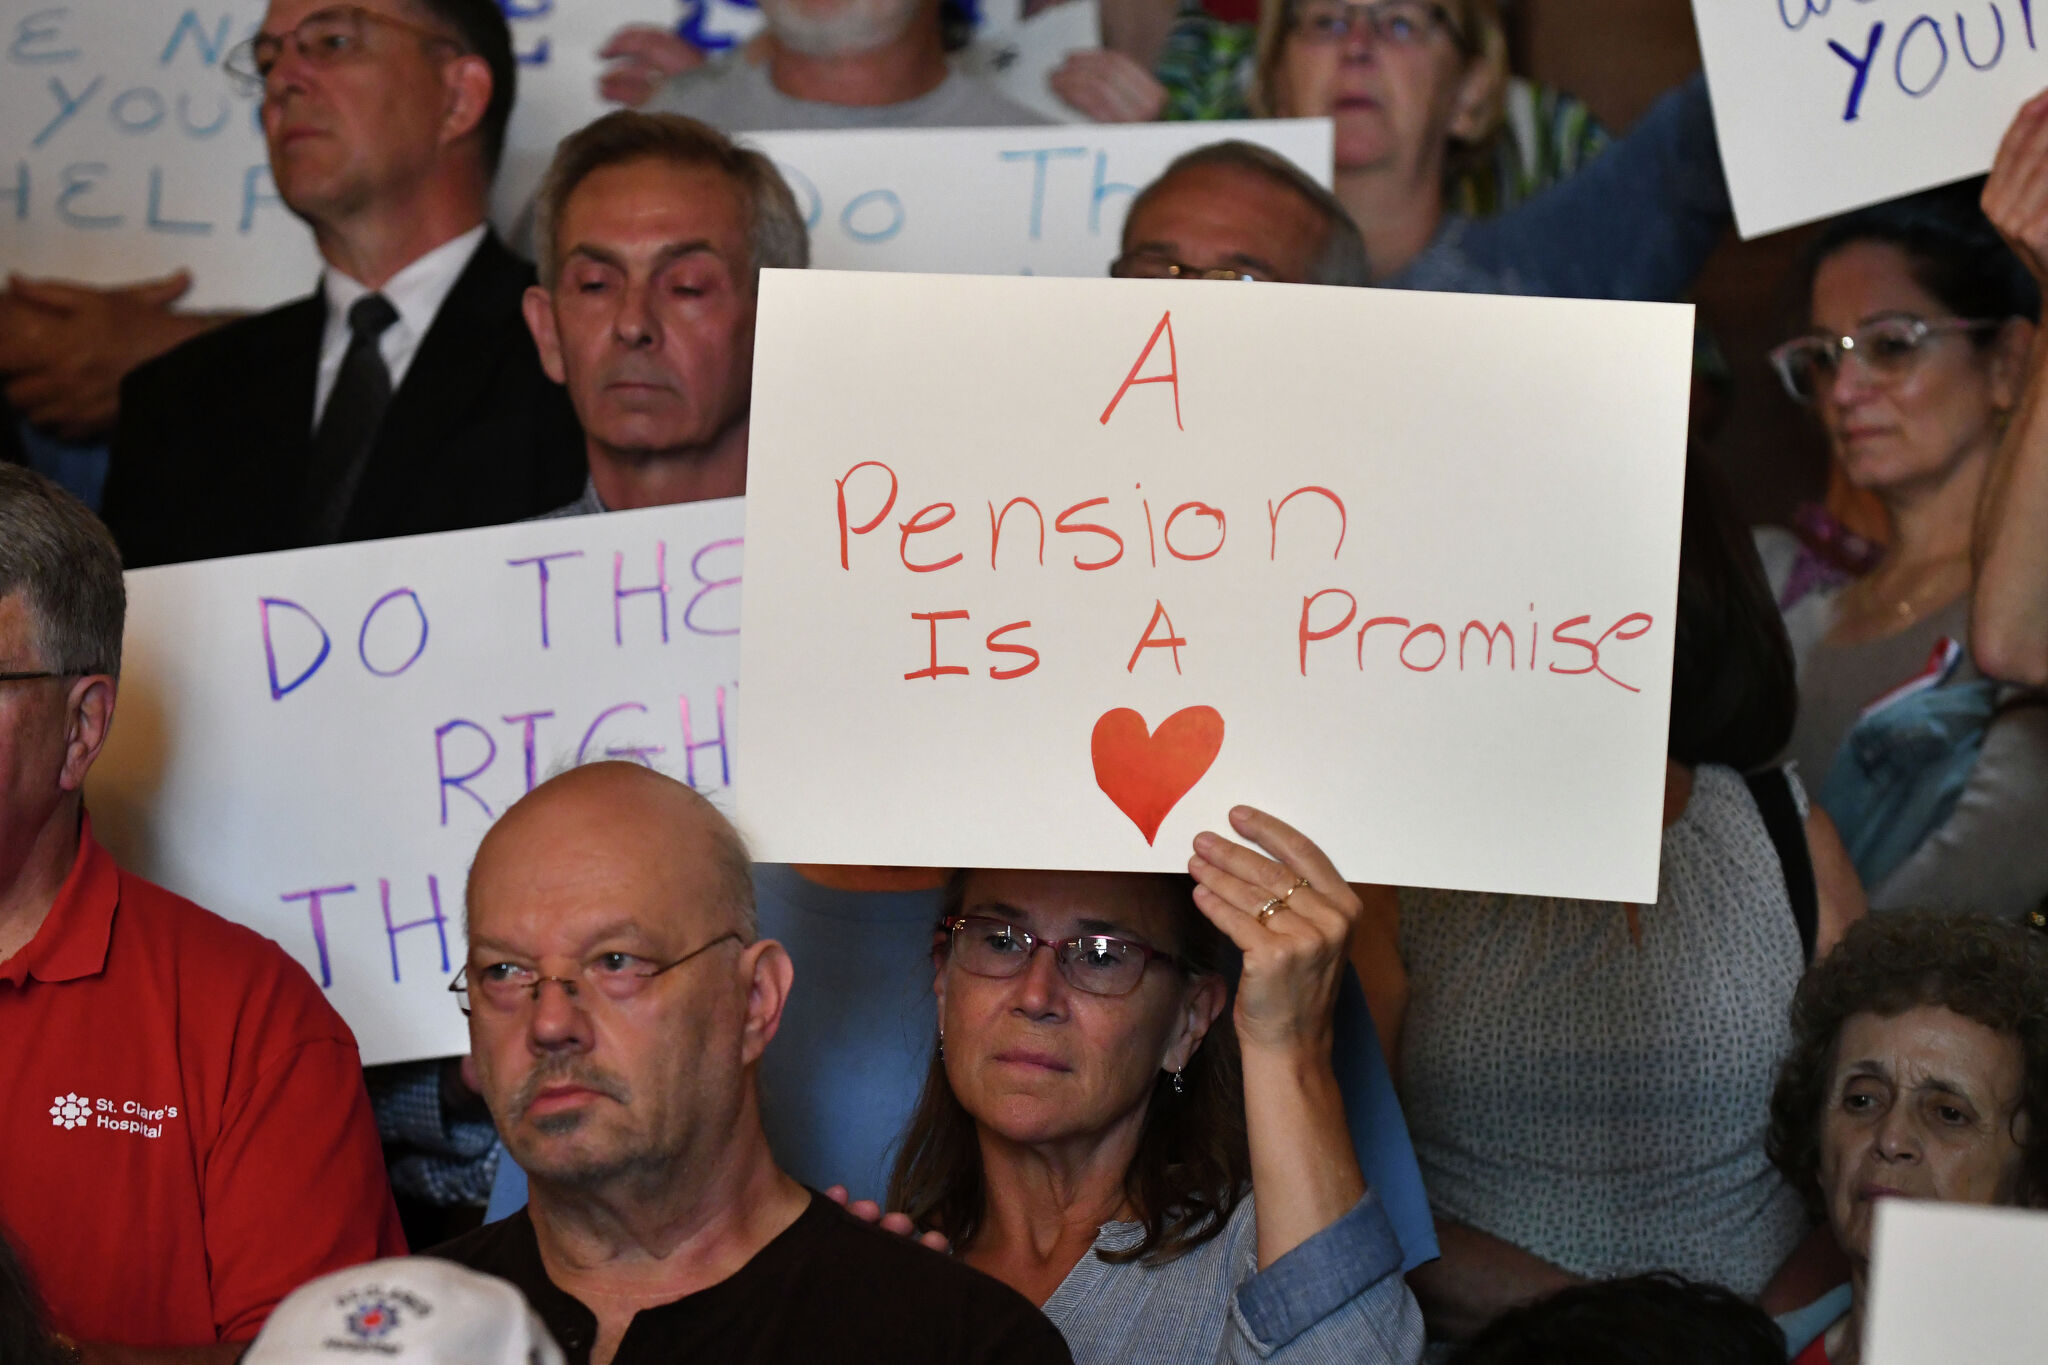 YOU
HELP
DO Th
YOUR
A
Pension
Is A Promise
DO THE
RIGH
TH
St. Clare's
Hospital